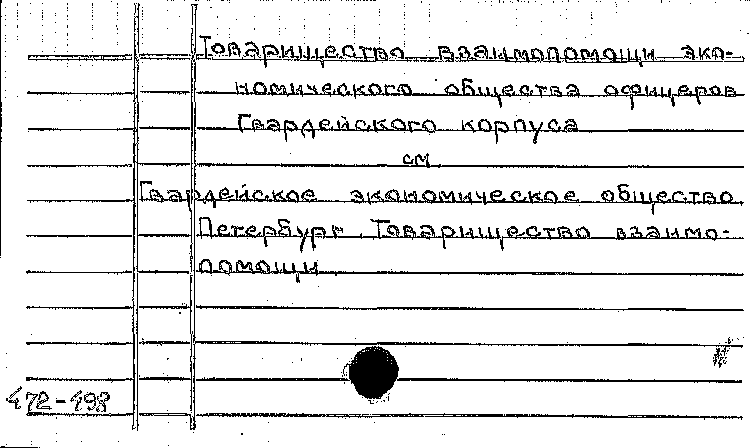 Товарищество взаимопомощи эко-
номического общества офицеров
Гвардейского корпуса
см.
Гвардейское экономическое общество.
Петербург. Товарищество взаимо-
помощи.
472-498